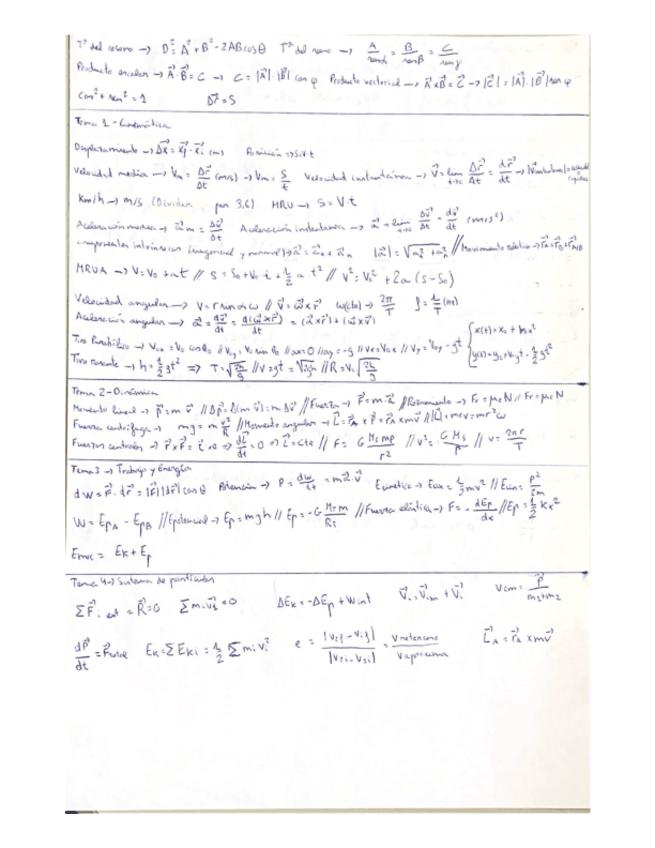 Tª del coseno → D² = A² + B² - 2AB cos θ   Tª del seno → A/senα = B/senβ = C/senγ
Producto escalar → A⃗·B⃗ = C → C = |A⃗|·|B⃗| cos φ   Producto vectorial → A⃗xB⃗ = C⃗ → |C⃗| = |A⃗|·|B⃗| sen φ
cos² + sen² = 1   Δr⃗ = S
Tema 1 - Cinemática
Desplazamiento → Δx⃗ = x⃗f - x⃗i (m)   Posición → S=v·t
Velocidad media → Vm = Δr⃗/Δt (m/s) → Vm = S/t   Velocidad instantánea → V⃗ = lim t→0 Δr⃗/Δt = dr⃗/dt
Km/h → m/s (Dividir por 3,6)   MRU → S = V·t
Aceleración media → a⃗m = Δv⃗/Δt   Aceleración instantánea → a⃗ = lim Δv⃗/Δt = dv⃗/dt (m/s²)
componentes intrínsecas (tangencial y normal) → a⃗ = a⃗t + a⃗n   |a⃗| = √(at² + an²) // Movimiento relativo → r⃗A = r⃗B + r⃗A/B
MRUA → V = V0 + at // S = S0 + V0t + 1/2 a t² // v² = V0² + 2a (S - S0)
Velocidad angular → V = r sen α ω // V⃗ = ω⃗ x r⃗   ω(cte) → 2π/T   f = 1/T (Hz)
Aceleración angular → a⃗ = dv⃗/dt = d(ω⃗ x r⃗)/dt = (α⃗ x r⃗) + (ω⃗ x v⃗)
Tiro Parabólico → V0x = V0 cos θ0 // V0y = V0 sen θ0 // ax = 0 // ay = -g // Vx = V0x // Vy = V0y - gt   { x(t) = x0 + V0xt
y(t) = y0 + V0yt - 1/2 gt²
Tiro rasante → h = 1/2 gt² ⇒ T = √(2h/g) // V = gt = √(2gh) // R = V0 √(2h/g)
Tema 2 - Dinámica
Momento lineal → p⃗ = m v⃗ // Δp⃗ = Δ(m v⃗) = m Δv⃗ // Fuerza → F⃗ = m·a⃗ // Rozamiento → Fr = μe N // Fr = μc N
Fuerza centrífuga → mg = m v²/R // Momento angular → L⃗ = r⃗A x P⃗ = r⃗A x mv⃗ // |L⃗| = mrv = mr²ω
Fuerzas centrales → r⃗ x F⃗ = τ⃗ = 0 ⇒ dL⃗/dt = 0 ⇒ L⃗ = cte // F = G Ms mp/r² // v² = G Ms/r // v = 2πr/T
Tema 3 → Trabajo y Energía
dW = F⃗·dr⃗ = |F⃗||dr⃗| cos θ   Potencia → P = dw/dt = m a⃗·v⃗   E cinética → Ecin = 1/2 mv² // Ecin = p²/2m
W = EpA - EpB // Epotencial → Ep = mgh // Ep = -G MT m/RT // Fuerza elástica → F = - dEp/dx // Ep = 1/2 Kx²
Emec = Ek + Ep
Tema 4 → Sistema de partículas
ΣF⃗i ext = R⃗ = 0   Σ mi v⃗i = 0   ΔEk = -ΔEp + Wint   V⃗i = V⃗cm + V⃗i   Vcm = P⃗/m1+m2
dP⃗/dt = F⃗   Ek = ΣEki = 1/2 Σ mi vi²   e = |v2f - v1f|/|v2i - v1i|   L⃗A = r⃗A x mv⃗